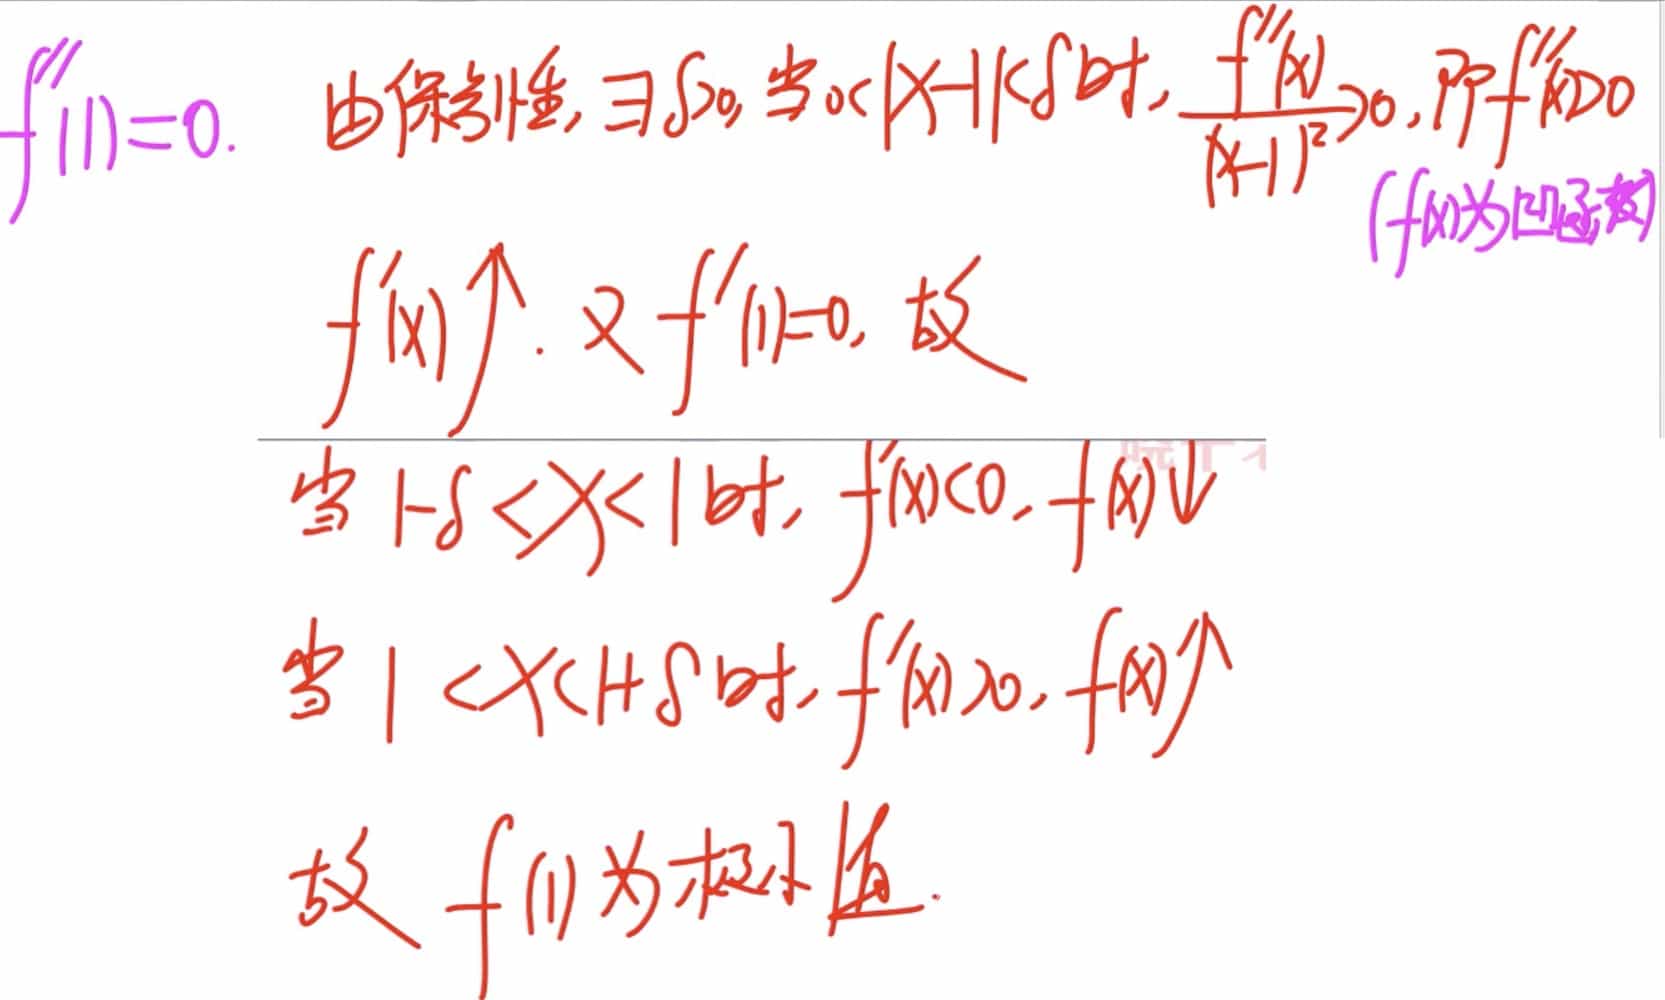 f''(1)=0.
由保号性, ∃δ>0, 当0<|x-1|<δ时, f''(x)/(x-1)²>0, 即f''(x)>0
(f(x)为凹函数)
f'(x)↑. 又f'(1)=0, 故
当1-δ<x<1时, f'(x)<0, f(x)↓
当1<x<1+δ时, f'(x)>0, f(x)↑
故f(1)为极小值.